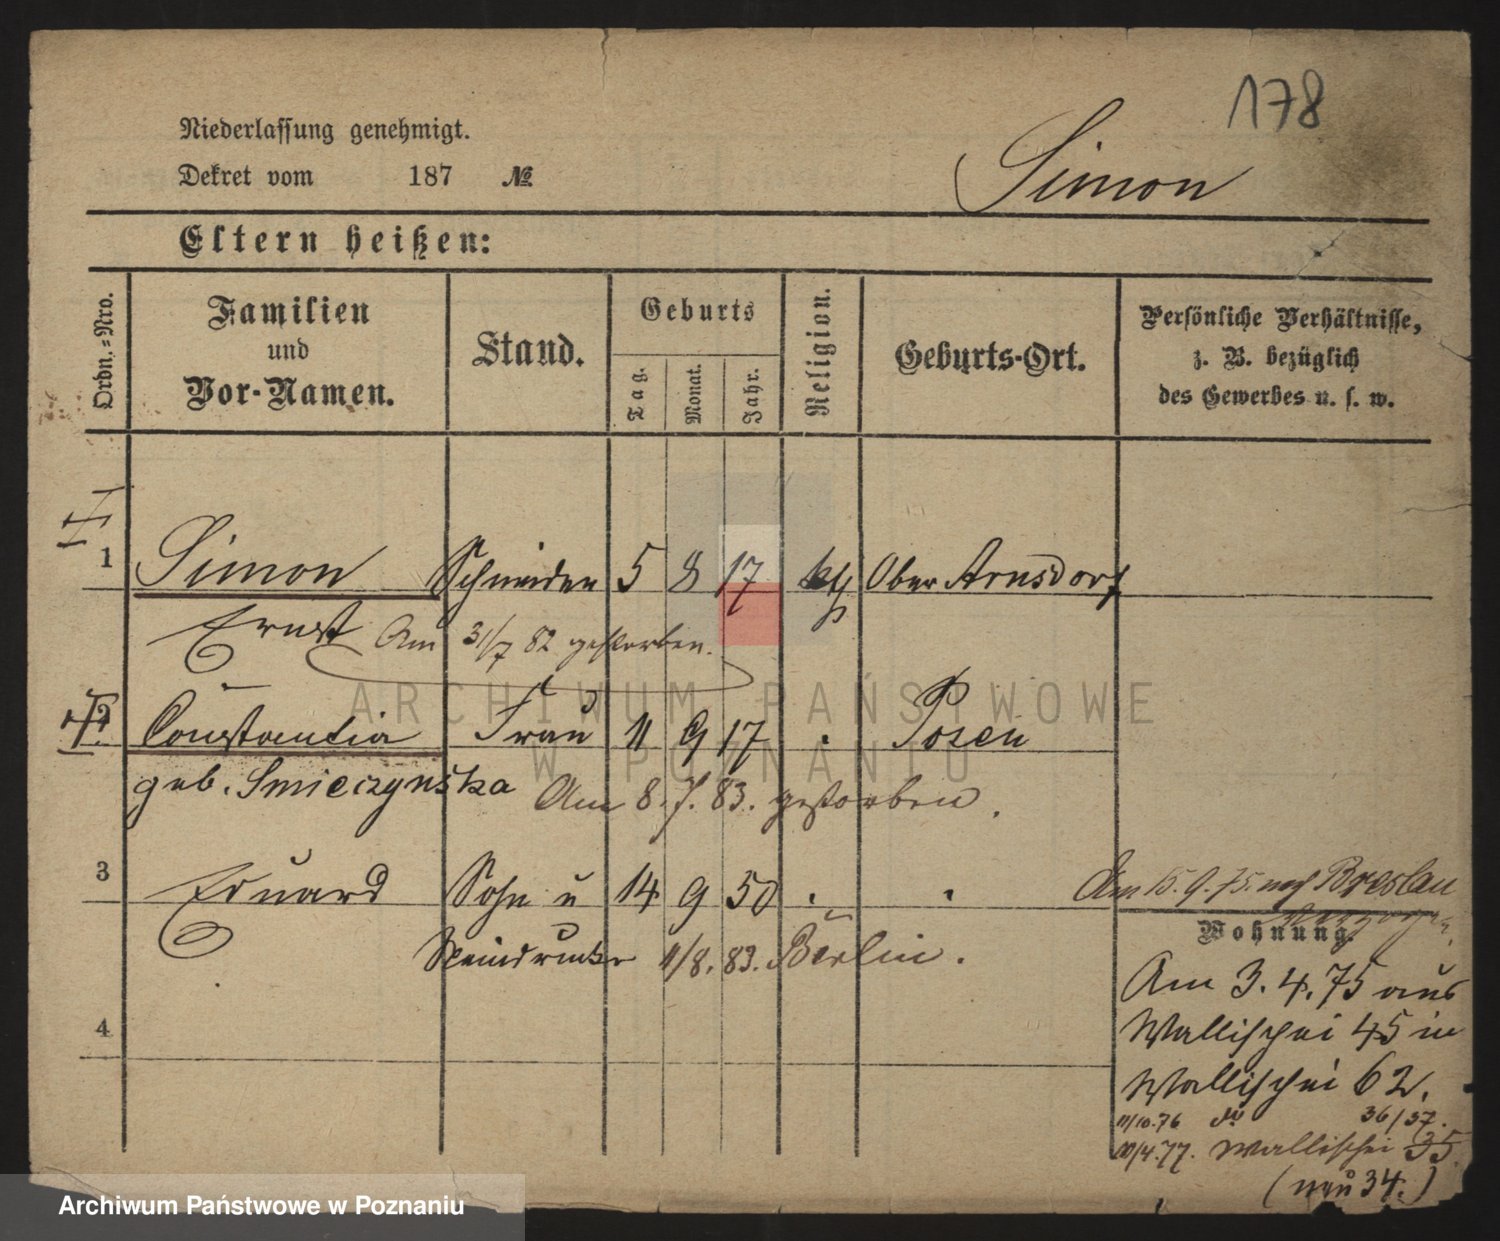 178
Niederlassung genehmigt.
Dekret vom 187 №
Simon
Eltern heißen:
Ordn.-Nro.
Familien und Vor-Namen.
Stand.
Geburts
Tag.
Monat.
Jahr.
Religion.
Geburts-Ort.
Persönliche Verhältnisse,
z. B. bezüglich
des Gewerbes u. s. w.
1 Simon Schneider 5 8 17 kth Ober Arnsdorf
Ernst Am 31/7 82 gestorben.
2 Constantia Frau 11 9 17 . Posen
geb. Smieczynska Am 8.7.83. gestorben.
3 Eduard Sohn u 14 9 50 . . Am 15.9.75. nach Breslau
verzogen.
Steindrucker 11/8.83. Berlin.
4
Wohnung.
Am 3.4.75 aus
Wallischei 45 in
Wallischei 62.
11/10.76 do 36/37.
10/4.77. Wallischei 35.
(neu 34.)
ARCHIWUM PAŃSTWOWE
W POZNANIU
Archiwum Państwowe w Poznaniu